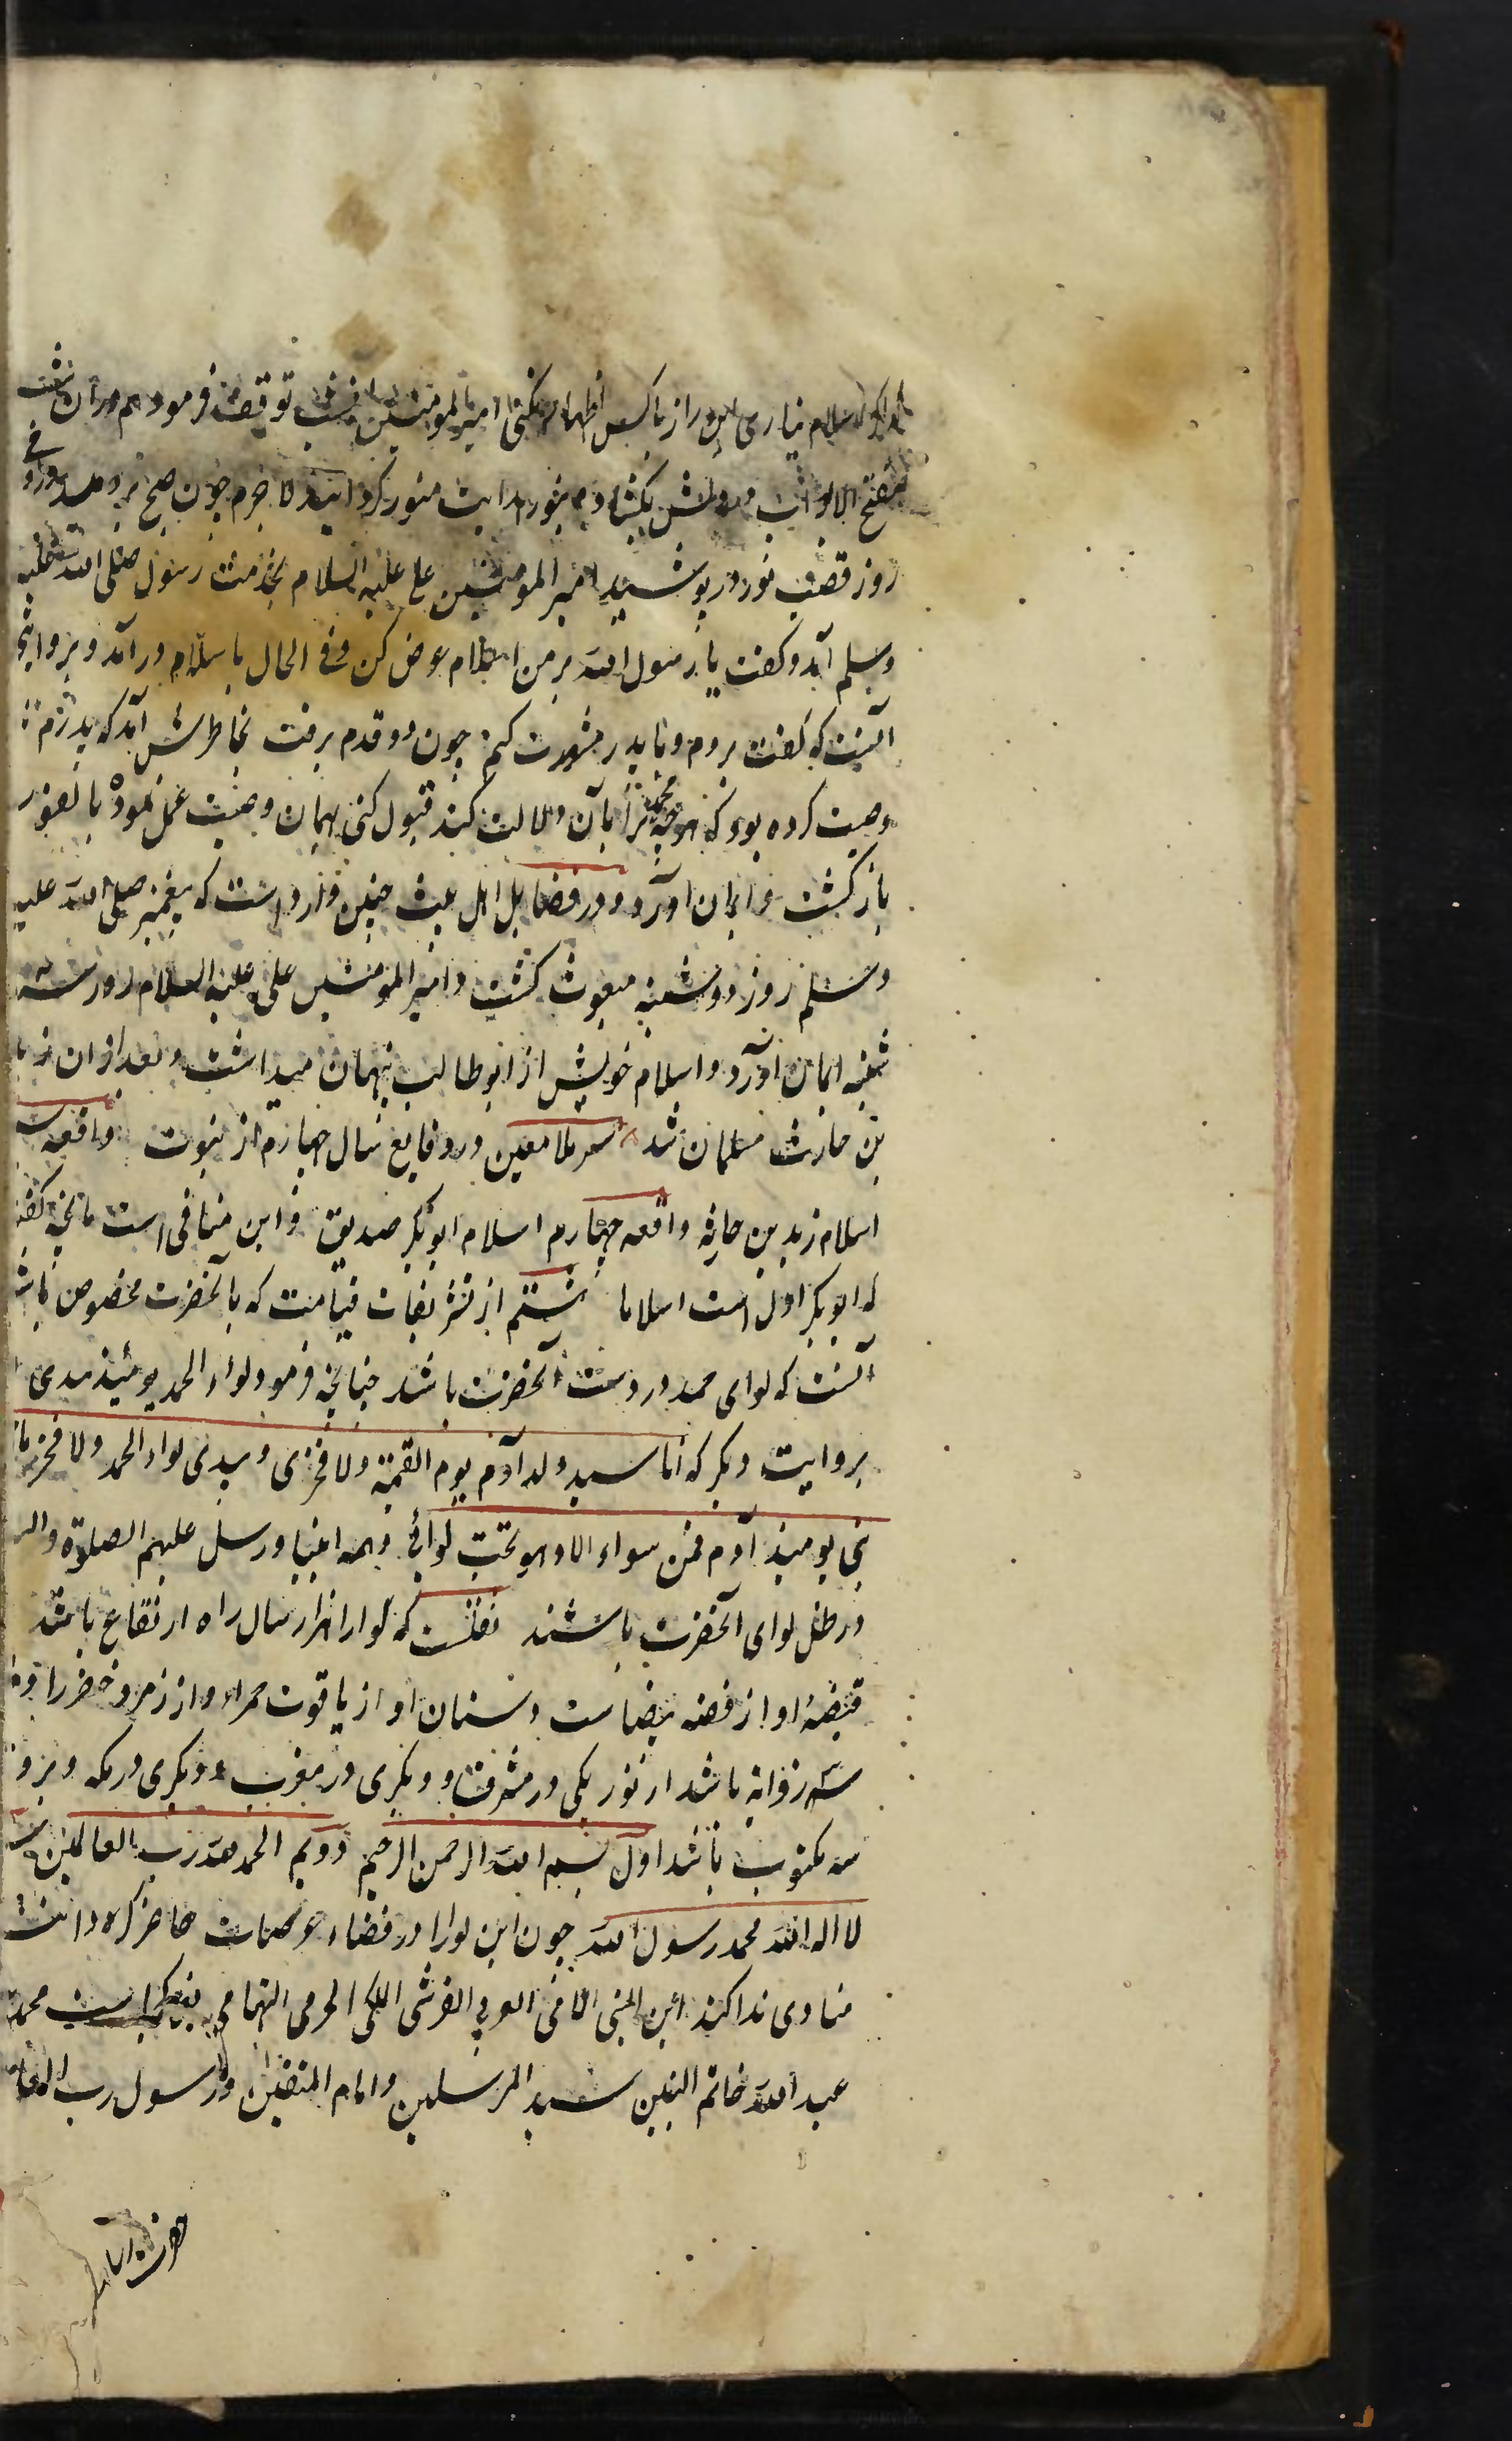 اسلام نیاری این راز با کس اظهار نکنی امیر المومنین شب توقف فرمود هم در آن شب
مفتح الابواب در دلش بگشاد و بنور هدایت منور گردانید لاجرم چون صبح بر دمید و در
روز قصب نور در پوشید امیر المومنین علی علیه السلام بخدمت رسول صلی الله علیه
وسلم آمد و گفت یا رسول الله بر من اسلام عرض کن و فی الحال باسلام در آمد و بروایتی
آنست که گفت بروم و با پدر مشورت کنم چون دو قدم برفت بخاطرش آمد که پدرم
وصیت کرده بود که هر چه محمد ترا بآن دلالت کند قبول کنی بهمان وصیت عمل نموده بالفور
باز گشت و ایمان آورد و در فضایل اهل بیت چنین وارد است که پیغمبر صلی الله علیه
وسلم روز دوشنبه مبعوث گشت و امیر المومنین علی علیه السلام روز سه
شنبه ایمان آورد و اسلام خویش از ابوطالب پنهان میداشت و بعد از ان زید
بن حارث مسلمان شد ملا معین در وقایع سال چهارم از نبوت واقعه
اسلام زید بن حارثه واقعه چهارم اسلام ابوبکر صدیق و این منافی است بانچه گفته
که ابوبکر اول است اسلاما هشتم از تشریفات قیامت که بآنحضرت مخصوص باشد
آنست که لوای حمد در دست آنحضرت باشد چنانچه فرمود لواء الحمد یومئذ بیدی
بروایت دیگر که انا سید ولد آدم یوم القیمة ولا فخری وبیدی لواء الحمد ولا فخر ما من
نبی یومئذ آدم فمن سواه الا وهو تحت لوائی وهمه انبیا ورسل علیهم الصلوة والسلام
در ظل لوای آنحضرت باشند نقلست که لوارا هزار سال راه ارتفاع باشد
قبضهٔ او از فضه بیضاست و سنان او از یاقوت حمراء و از زمرد خضرا و
سه زوایه باشد از نور یکی در مشرق و دیگری در مغرب و دیگری در مکه و برو
سه مکتوب باشد اول بسم الله الرحمن الرحیم دویم الحمد لله رب العالمین
لا اله الله محمد رسول الله چون این لوارا در فضاء عرصات حاضر کرده دانند
منادی ندا کند این النبی الامی العربی القرشی المکی الحرمی التهامی محمد
عبد الله خاتم النبیین سید المرسلین و امام المتقین و رسول رب العا